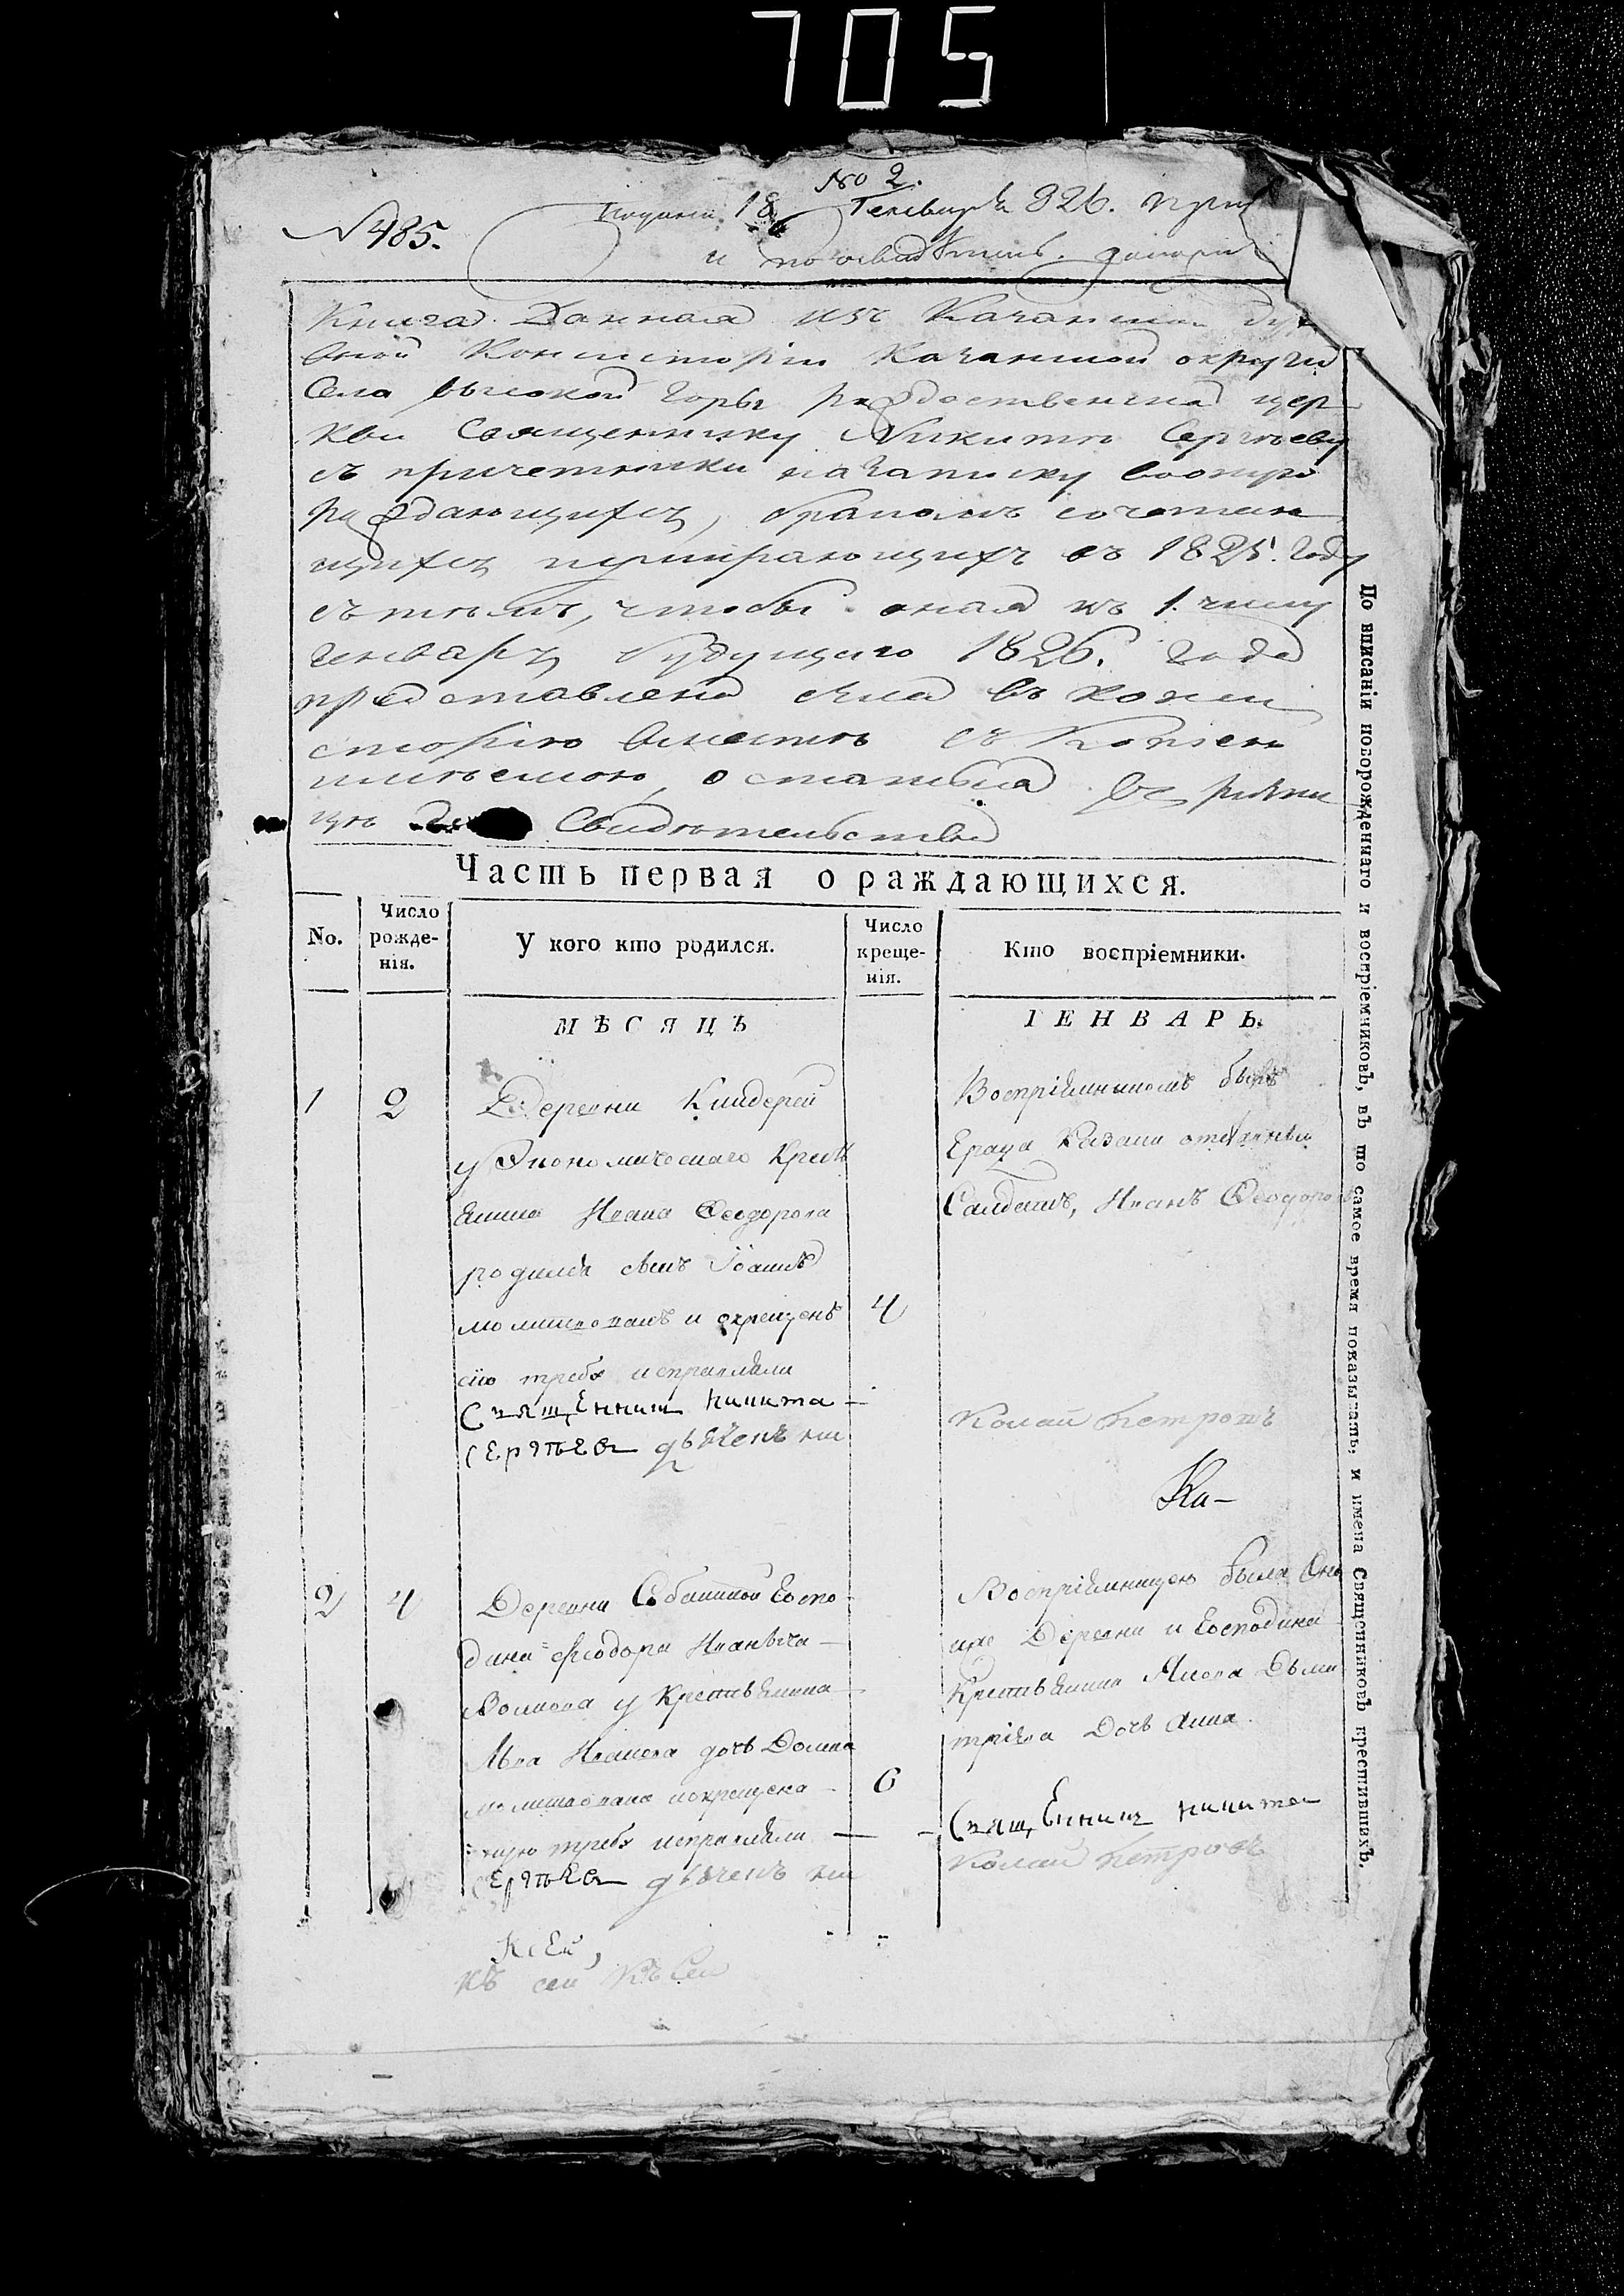 705
No 2.
№ 485.
18 Генваря 826.
и
Книга Данная изъ Казанской Духо
вной Консисторіи Казанской округи
Села высокой Горы рождественской цер
кви Священнику Никитѣ Сергѣеву
съ причетники на записку во оную
рождающихся, бракомъ сочетаю
щихся умирающихъ въ 1825. Году
съ тѣмъ, чтобы оная къ 1. числу
Генваря будущаго 1826. Года
представлена была въ Конси
сторію вмѣстѣ съ Копіею
имѣемою остаться въ ризни
цѣ Свидѣтельства
Часть первая о раждающихся.
No. Число рожде-нія. У кого кто родился. Число креще-нія. Кто воспріемники.
МѢСЯЦЪ ІЕНВАРЬ.
1 2 Деревни Киндерей
у Экономическаго Кресть
янина Ивана Ѳеодорова
родился сынъ Іоаннъ
молитвованъ и окрещенъ 4
сію требу исправляли
Священникъ никита
сергѣевъ дьячекъ ни
Воспріемникомъ былъ
Града Казани
Салдатъ, Иванъ Ѳеодоров
колай петровъ
Ка-
2 4 Деревни Собакиной Госпо
дина Ѳеодора Иваныча
Волкова у Крестьянина
Льва Иванова дочь Домна
молитвована и окрещена 6
требу исправляли
сергѣевъ дьячекъ ни
Воспріемницею была Оно
иже Деревни и Господина
Крестьянина Якова Дьми
тріева Дочь Анна.
Священникъ никита
колай петровъ
К сей,
къ сей Къ Сей
По вписаніи новорожденнаго и воспріемниковъ, въ то самое время показывать, и имена Священниковъ крестившихъ.